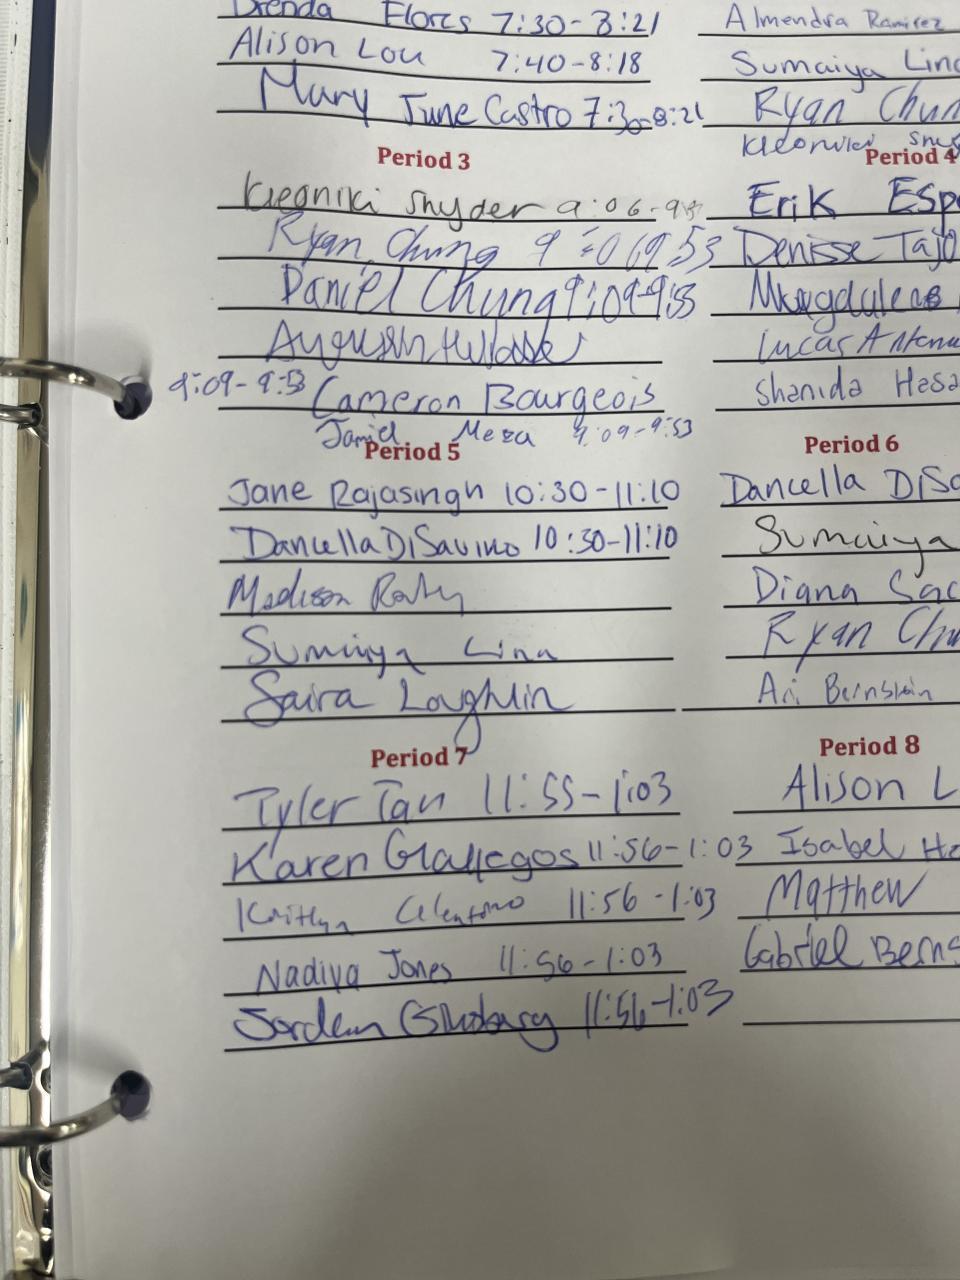 Brenda Flores 7:30-8:21
Almendra Ramirez
Alison Lou 7:40-8:18
Sumaiya Lina
Mary June Castro 7:30-8:21
Ryan Chun
Kleoniki Sny
Period 3
Period 4
Kleoniki Snyder 9:06-9:53
Erik Espo
Ryan Chung 9:06 9:53
Denisse Tajo
Daniel Chung 9:09-9:53
Magdalena
Lucas
9:09-9:53 Cameron Bourgeois
Shanida Hasa
Jamiel Meza 9:09-9:53
Period 5
Period 6
Jane Rajasingh 10:30-11:10
Dancella DiSa
Dancella DiSavino 10:30-11:10
Sumaiya
Madison
Diana Sac
Sumaiya Lina
Ryan Chu
Saira Loughlin
Ari Bernstein
Period 7
Period 8
Tyler Tan 11:55-1:03
Alison L
Karen Gallegos 11:56-1:03
Isabel He
Kaitlyn 11:56-1:03
Matthew
Nadiya Jones 11:56-1:03
Gabriel Berns
Jordan 11:56-1:03